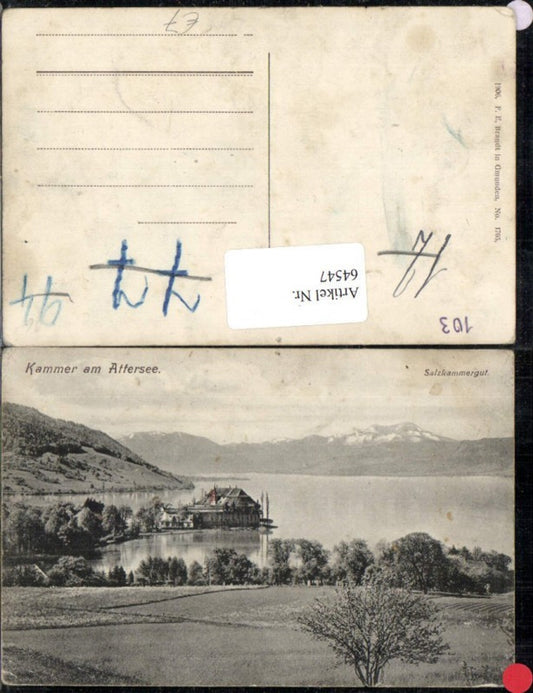 E7
1906, F. E. Brandt in Gmunden, No. 1795,
77
94
Artikel Nr.
64547
103
Kammer am Attersee.
Salzkammergut.